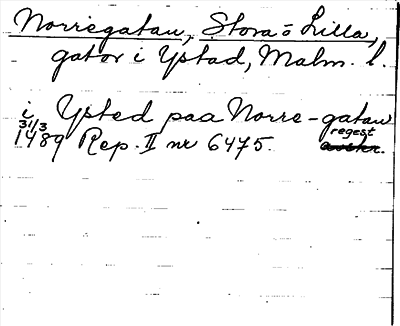 Norregatan, Stora o Lilla,
gator i Ystad, Malm. l.
i Ysted paa Norre-gatan
31/3 regest
1489 Rep. II nr 6475.